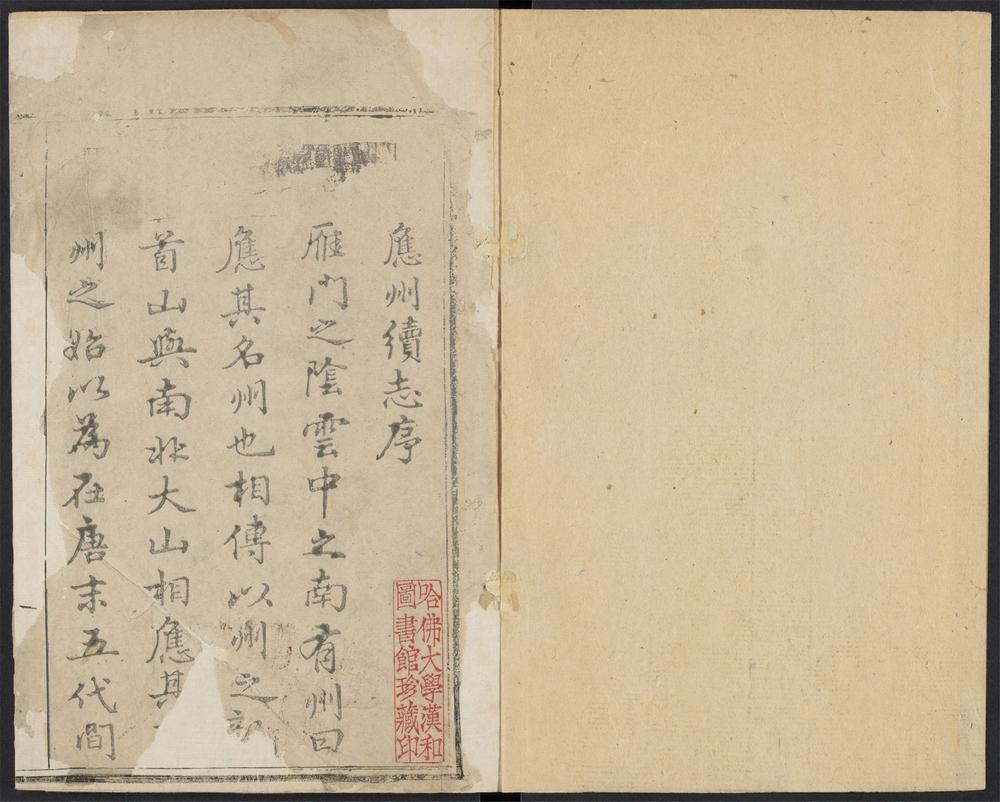 應州續志序
雁門之陰雲中之南有州曰
應其名州也相傳以州之
首山與南北大山相應其
州之始以為在唐末五代間
哈佛大學漢和
圖書館珍藏印